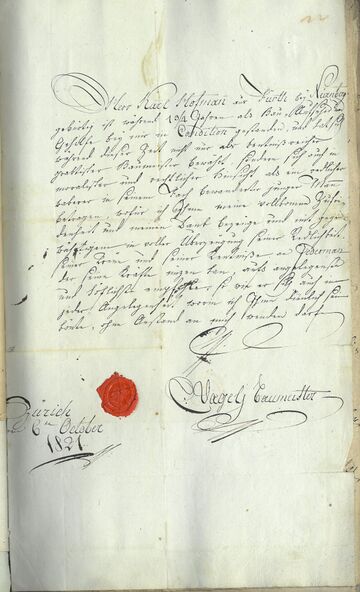 Herr Karl Hofman aus Fürth bey Nürnberg
gebürtig ist während 1 3/4 Jahren als Bau
Gehilfe bey mir in Condition gestanden, und hat sich
während dieser Zeit nicht nur als kentnissreicher
praktischer Baumeister bewährt sondern sich auch in
moralischer und rechtlicher Hinsicht als ein redlicher
braver in seinem Fach bewanderter junger Man
betragen, wofür ich Ihm meine vollkomne Zufrie-
denheit und meinen Dank bezeige und mit gegen-
wärtigem in voller Überzeugung seiner Rechtschaffen
seiner Treue und seiner Kentnisse an Jederman
der seine Kräfte nuzen kan, aufs angelegenste
und höflichste empfehle, so wie er sich auch in
jeder Angelegenheit, worin ich Ihme dienlich seyn
könte, ohne Anstand an mich wenden darf
Vogel, Baumeister
Zürich
6ten October
1821